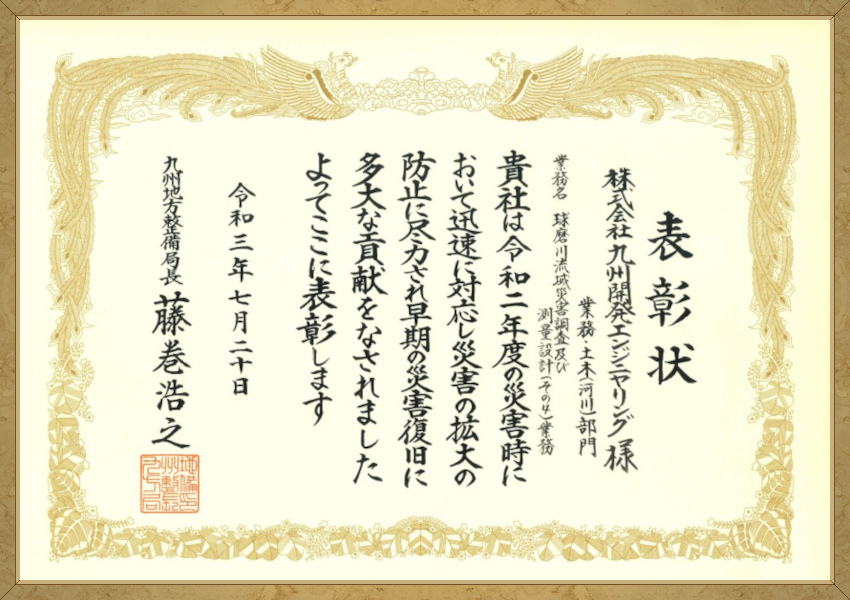 表彰状
株式会社 九州開発エンジニヤリング 様
業務・土木(河川)部門
業務名 球磨川流域災害調査及び
測量設計(その4)業務
貴社は令和二年度の災害時に
おいて迅速に対応し災害の拡大の
防止に尽力され早期の災害復旧に
多大な貢献をなされました
よってここに表彰します
令和三年七月二十日
九州地方整備局長 藤巻浩之